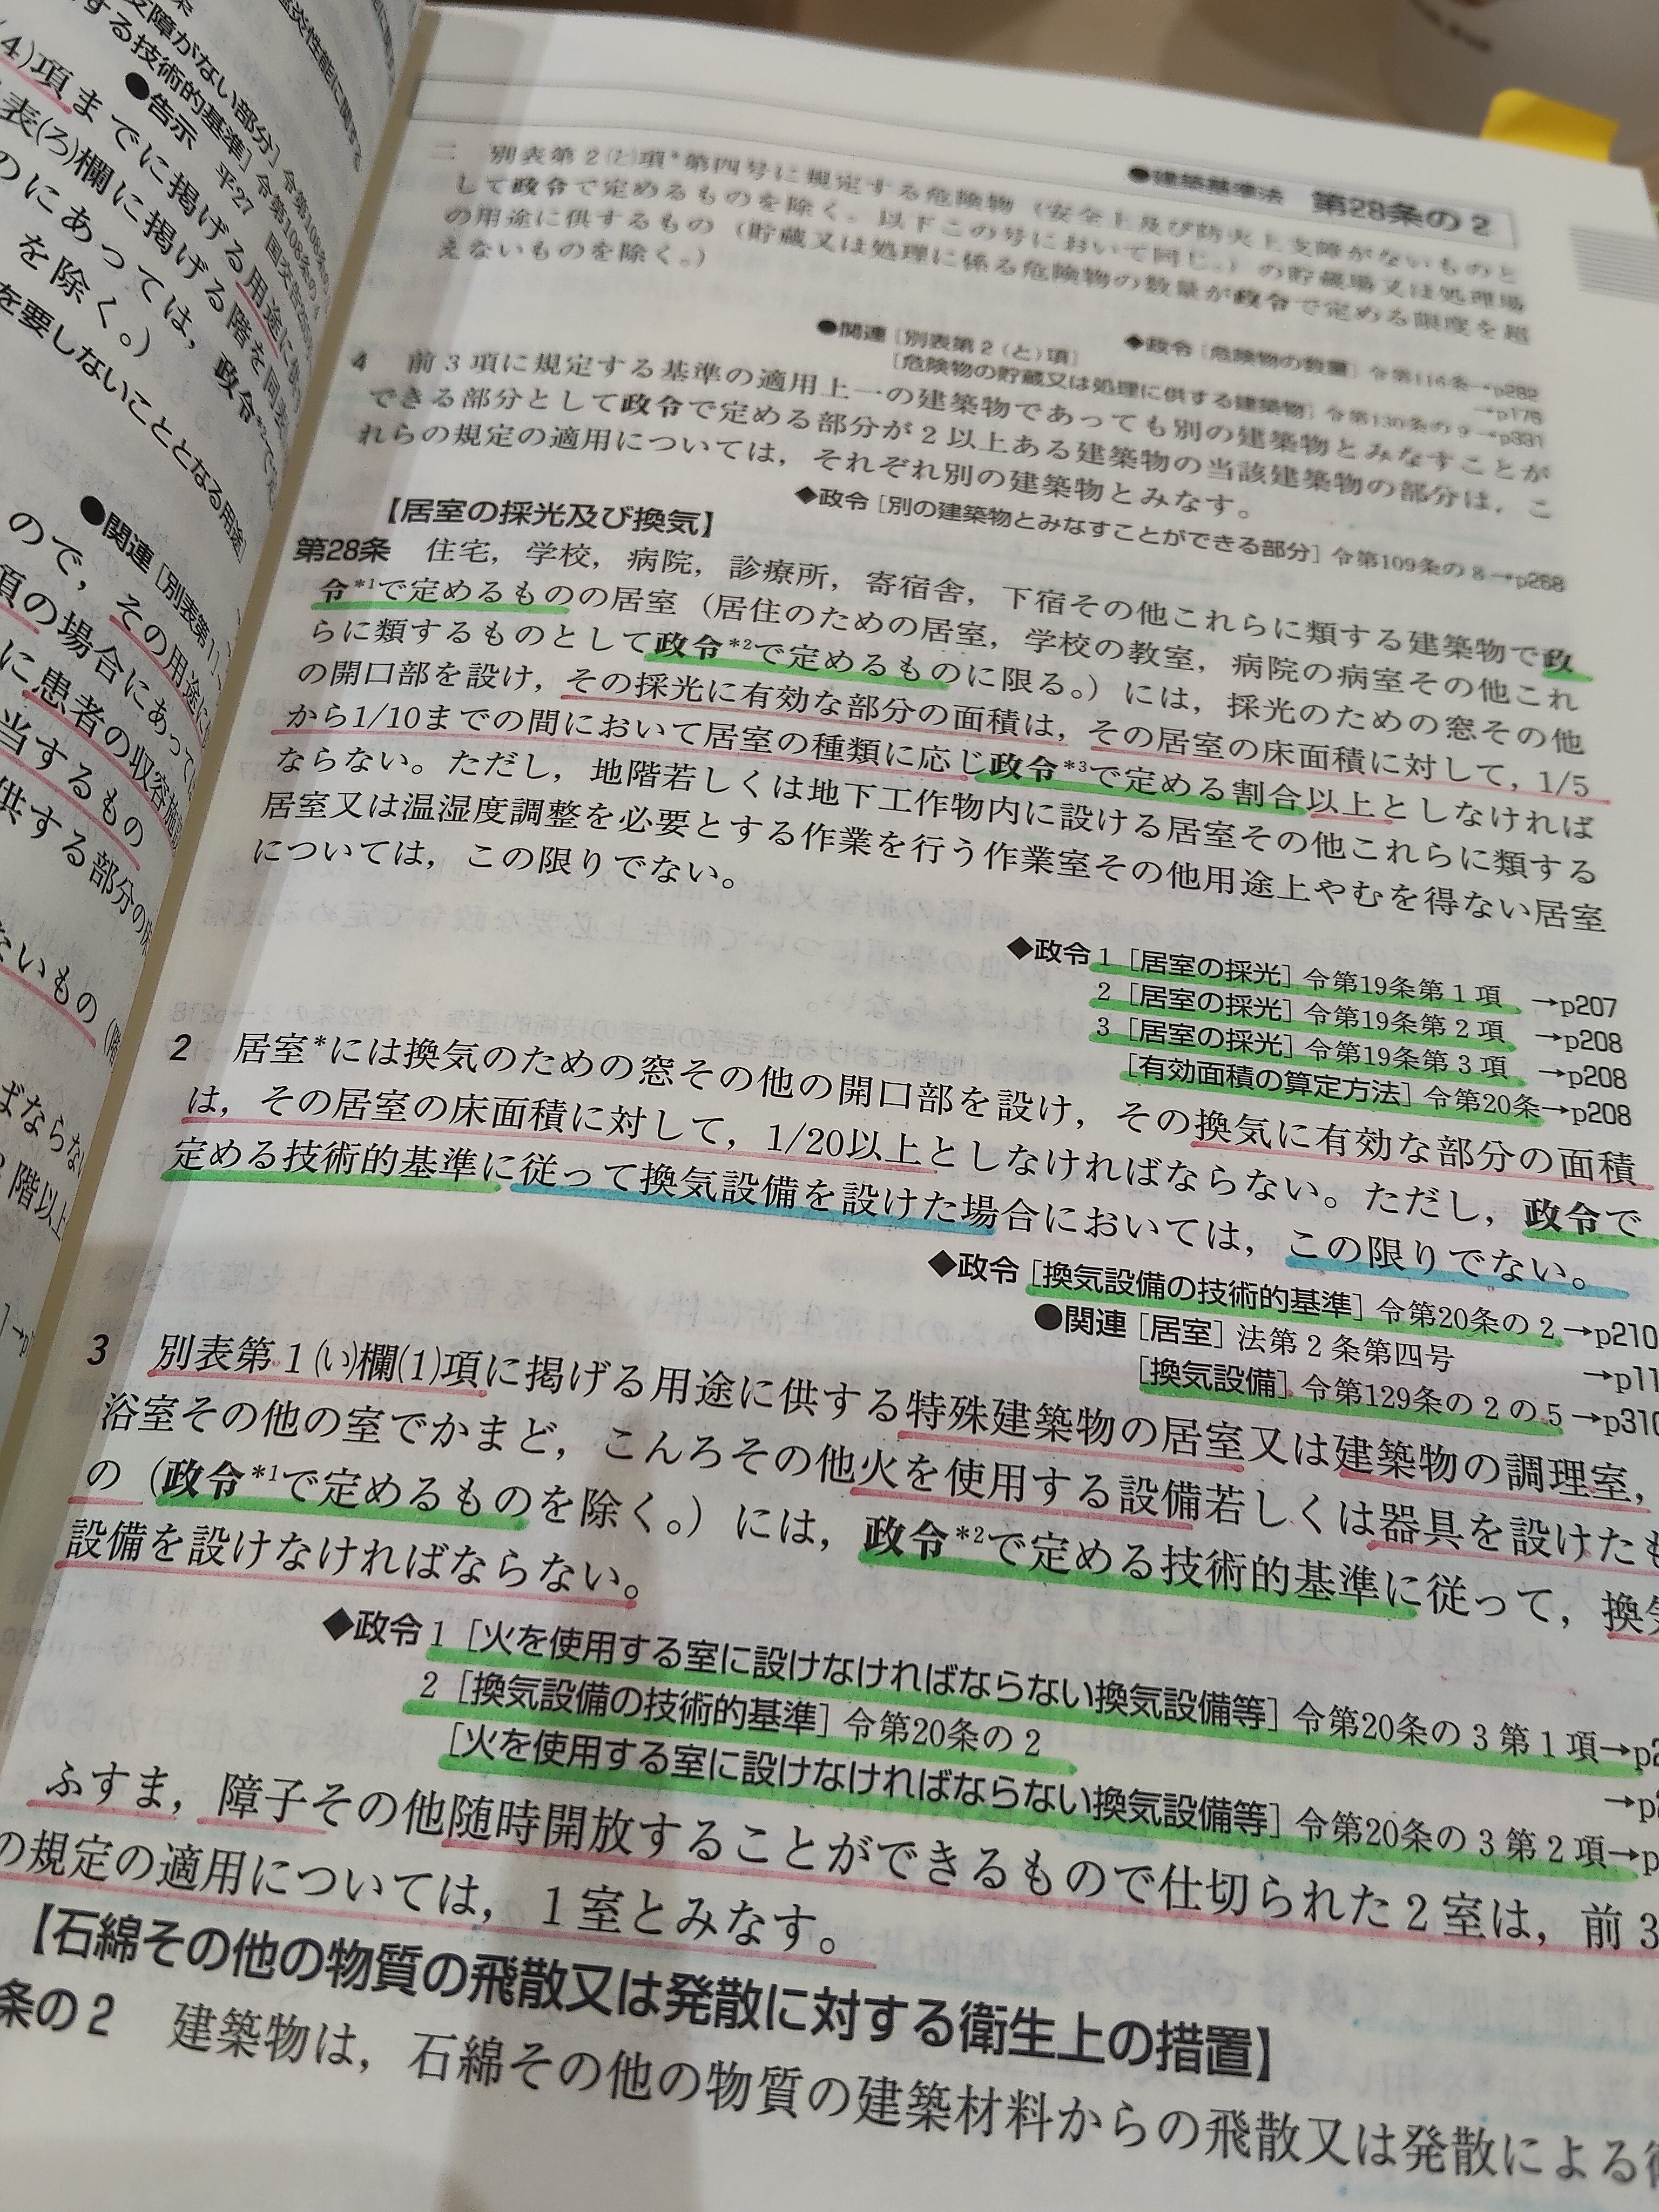 支障がない部分］令第108条の
する技術的基準］令第108条の4
●告示 平27 国交告
(4)項までに掲げる用途に
表(ろ)欄に掲げる階を同
のにあっては，政令*²で
を除く。）
を要しないこととなる用途］
●関連［別表第1］
ので，その用途に
項の場合にあって
に患者の収容施設
当するもの
供する部分の
ないもの（階
ばならな
3階以上
●建築基準法 第28条の2
二 別表第2(と)項*第四号に規定する危険物（安全上及び防火上支障がないものと
して政令で定めるものを除く。以下この号において同じ。）の貯蔵場又は処理場
の用途に供するもの（貯蔵又は処理に係る危険物の数量が政令で定める限度を超
えないものを除く。）
◆政令［危険物の数量］令第116条→p282
●関連［別表第2(と)項］→p176
［危険物の貯蔵又は処理に供する建築物］令第130条の9→p331
4 前3項に規定する基準の適用上一の建築物であっても別の建築物とみなすことが
できる部分として政令で定める部分が2以上ある建築物の当該建築物の部分は，こ
れらの規定の適用については，それぞれ別の建築物とみなす。
◆政令［別の建築物とみなすことができる部分］令第109条の8→p268
【居室の採光及び換気】
第28条 住宅，学校，病院，診療所，寄宿舎，下宿その他これらに類する建築物で政
令*¹で定めるものの居室（居住のための居室，学校の教室，病院の病室その他これ
らに類するものとして政令*²で定めるものに限る。）には，採光のための窓その他
の開口部を設け，その採光に有効な部分の面積は，その居室の床面積に対して，1/5
から1/10までの間において居室の種類に応じ政令*³で定める割合以上としなければ
ならない。ただし，地階若しくは地下工作物内に設ける居室その他これらに類する
居室又は温湿度調整を必要とする作業を行う作業室その他用途上やむを得ない居室
については，この限りでない。
◆政令1［居室の採光］令第19条第1項 →p207
2［居室の採光］令第19条第2項 →p208
3［居室の採光］令第19条第3項 →p208
［有効面積の算定方法］令第20条→p208
2 居室*には換気のための窓その他の開口部を設け，その換気に有効な部分の面積
は，その居室の床面積に対して，1/20以上としなければならない。ただし，政令で
定める技術的基準に従って換気設備を設けた場合においては，この限りでない。
◆政令［換気設備の技術的基準］令第20条の2→p210
●関連［居室］法第2条第四号 →p11
［換気設備］令第129条の2の5→p310
3 別表第1(い)欄(1)項に掲げる用途に供する特殊建築物の居室又は建築物の調理室，
浴室その他の室でかまど，こんろその他火を使用する設備若しくは器具を設けたも
の（政令*¹で定めるものを除く。）には，政令*²で定める技術的基準に従って，換気
設備を設けなければならない。
◆政令1［火を使用する室に設けなければならない換気設備等］令第20条の3第1項→p2
2［換気設備の技術的基準］令第20条の2 →p2
［火を使用する室に設けなければならない換気設備等］令第20条の3第2項→p
ふすま，障子その他随時開放することができるもので仕切られた2室は，前3
の規定の適用については，1室とみなす。
【石綿その他の物質の飛散又は発散に対する衛生上の措置】
条の2 建築物は，石綿その他の物質の建築材料からの飛散又は発散による